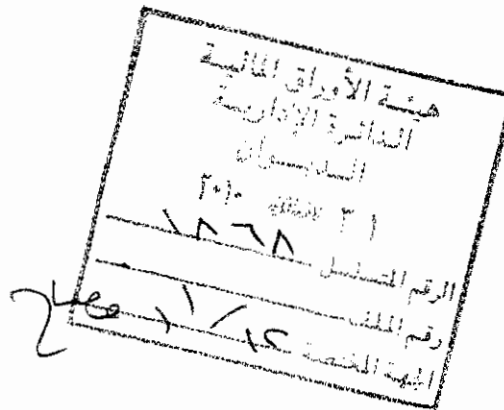 هيئة الأوراق المالية
الدائرة الإدارية
الديوان
٣١ ٢٠١٠
الرقم المتسلسل ١٨٦٨
رقم الملف
الجهة المختصة ١١/١٢